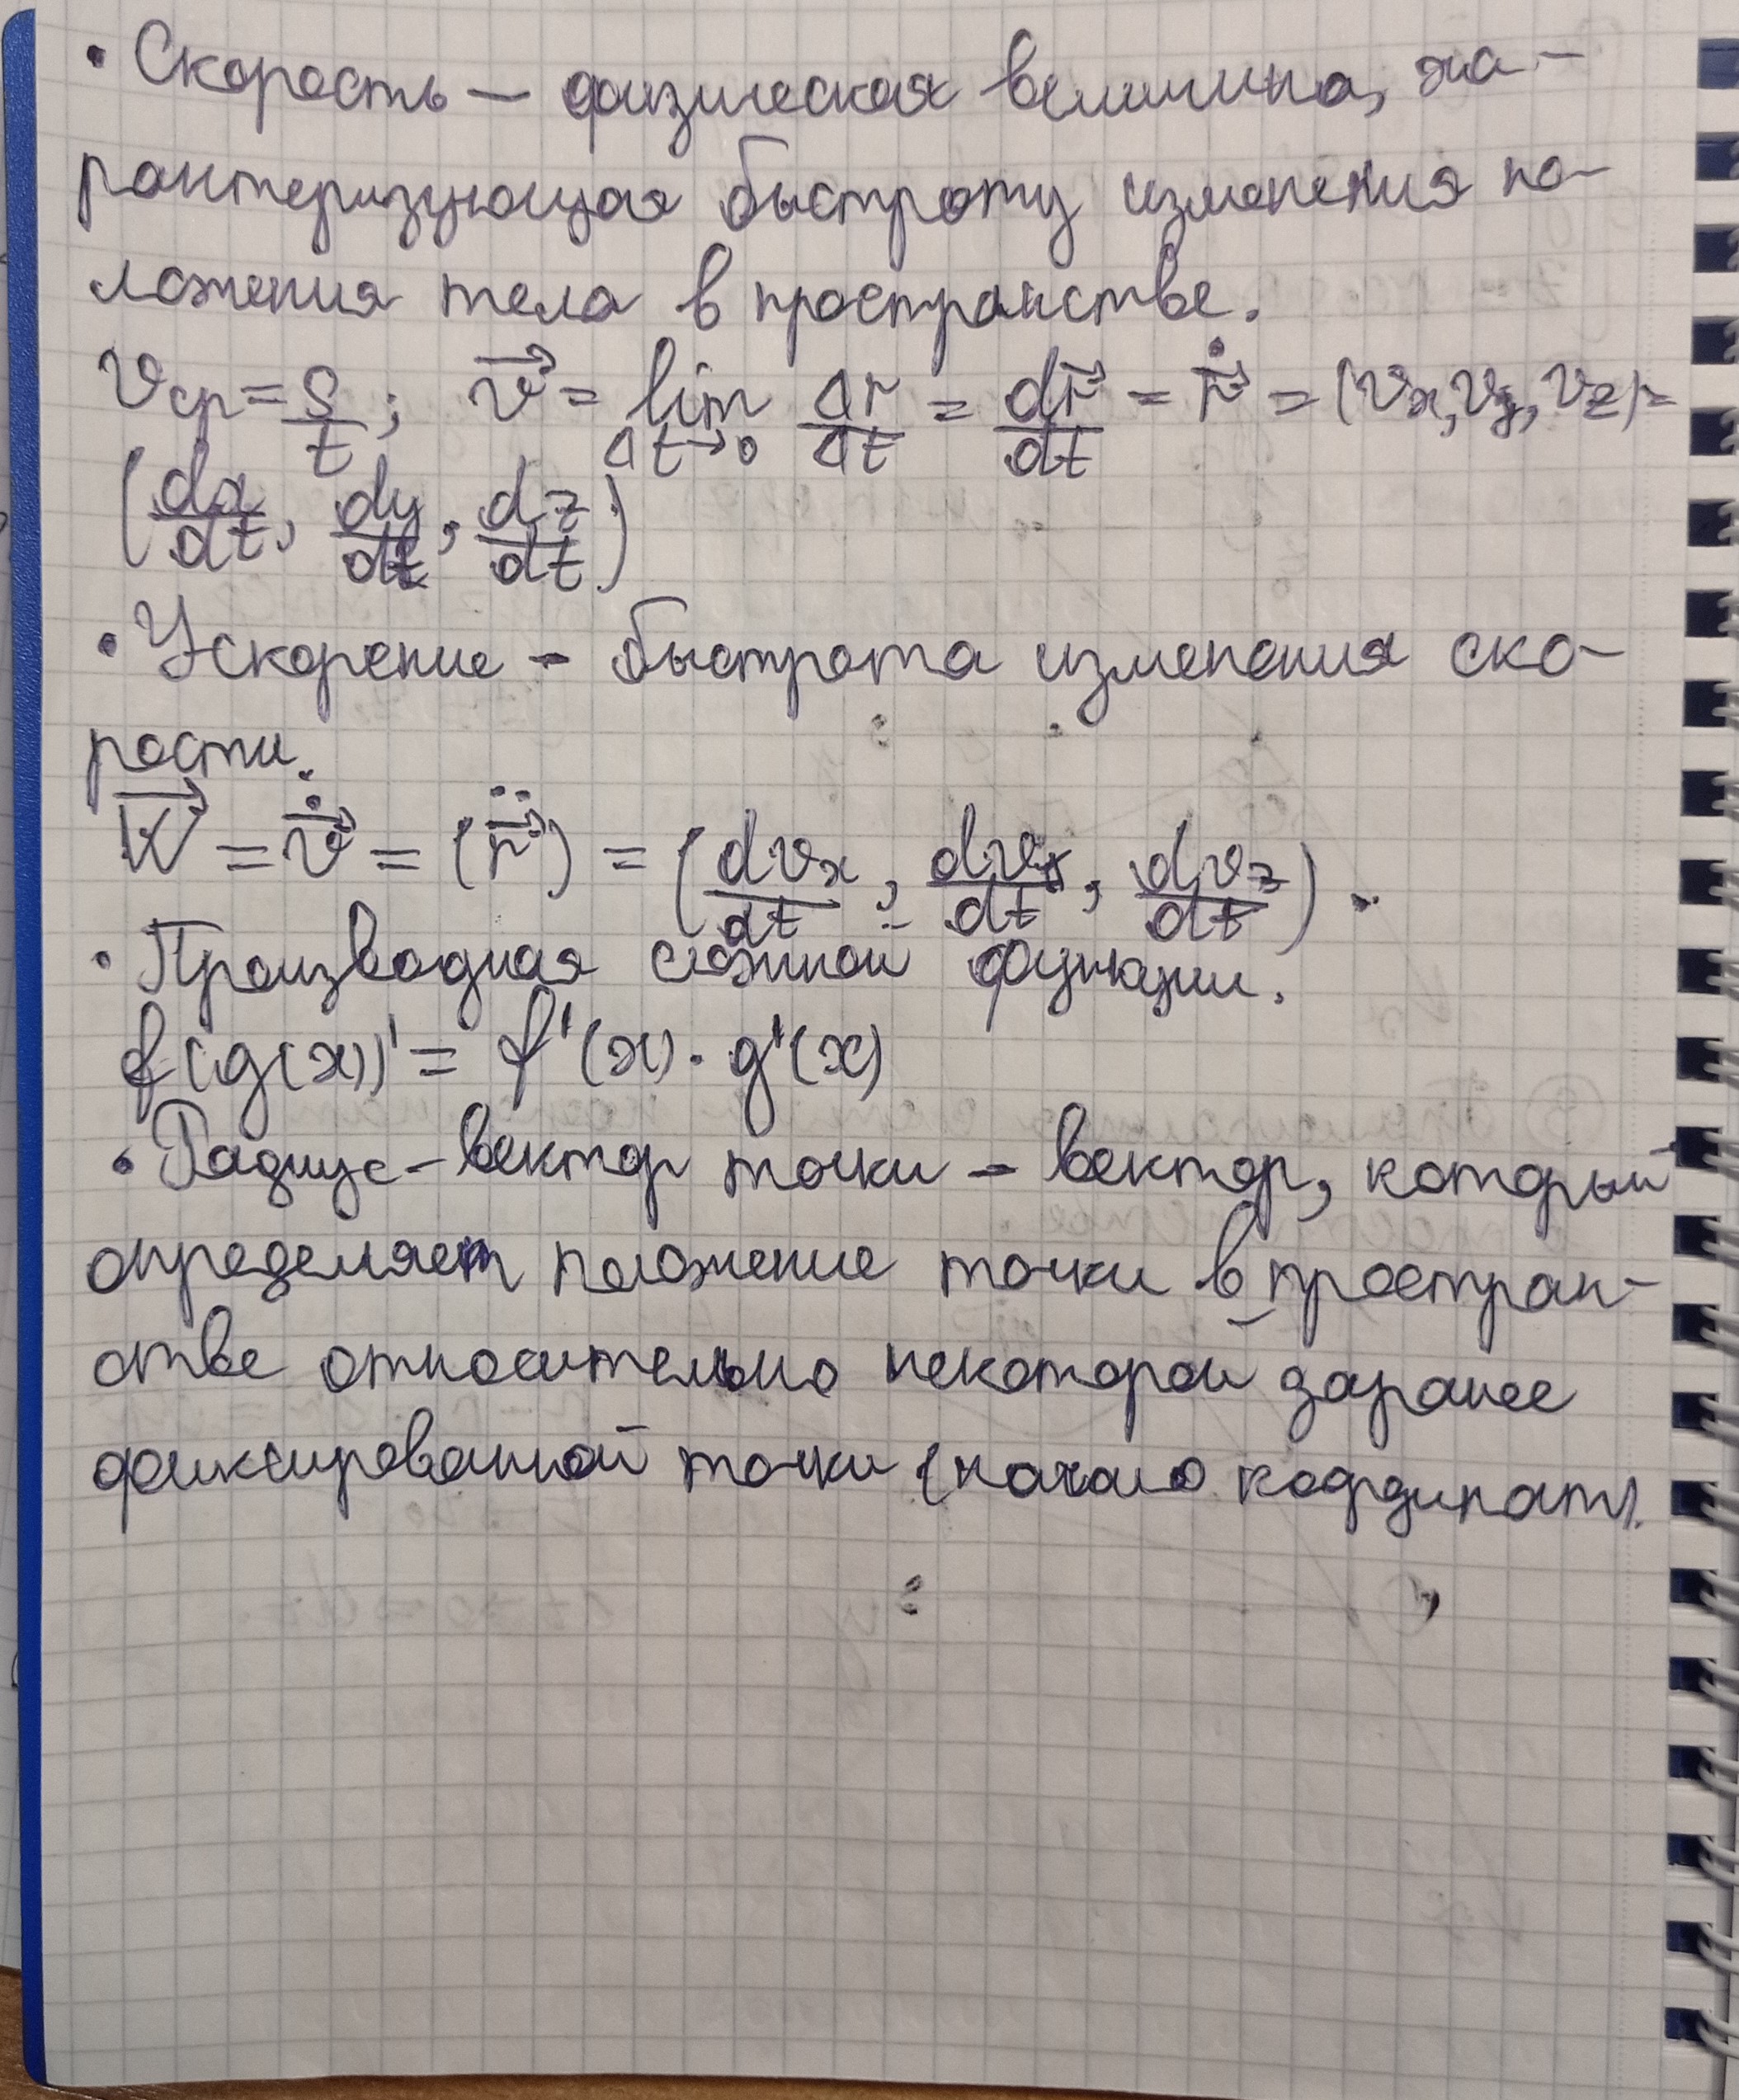 • Скорость – физическая величина, ха-
рактеризующая быстроту изменения по-
ложения тела в пространстве.
v_ср = S/t; v⃗ = lim_{Δt→0} Δr/Δt = dr⃗/dt = ṙ⃗ = (v_x, v_y, v_z) =
(dx/dt, dy/dt, dz/dt)
• Ускорение – быстрота изменения ско-
рости.
W⃗ = v̇⃗ = (r̈⃗) = (dv_x/dt, dv_y/dt, dv_z/dt).
• Производная сложной функции.
f(g(x))' = f'(x) · g'(x)
• Радиус-вектор точки – вектор, который
определяет положение точки в простран-
стве относительно некоторой заранее
фиксированной точки (начало координат).